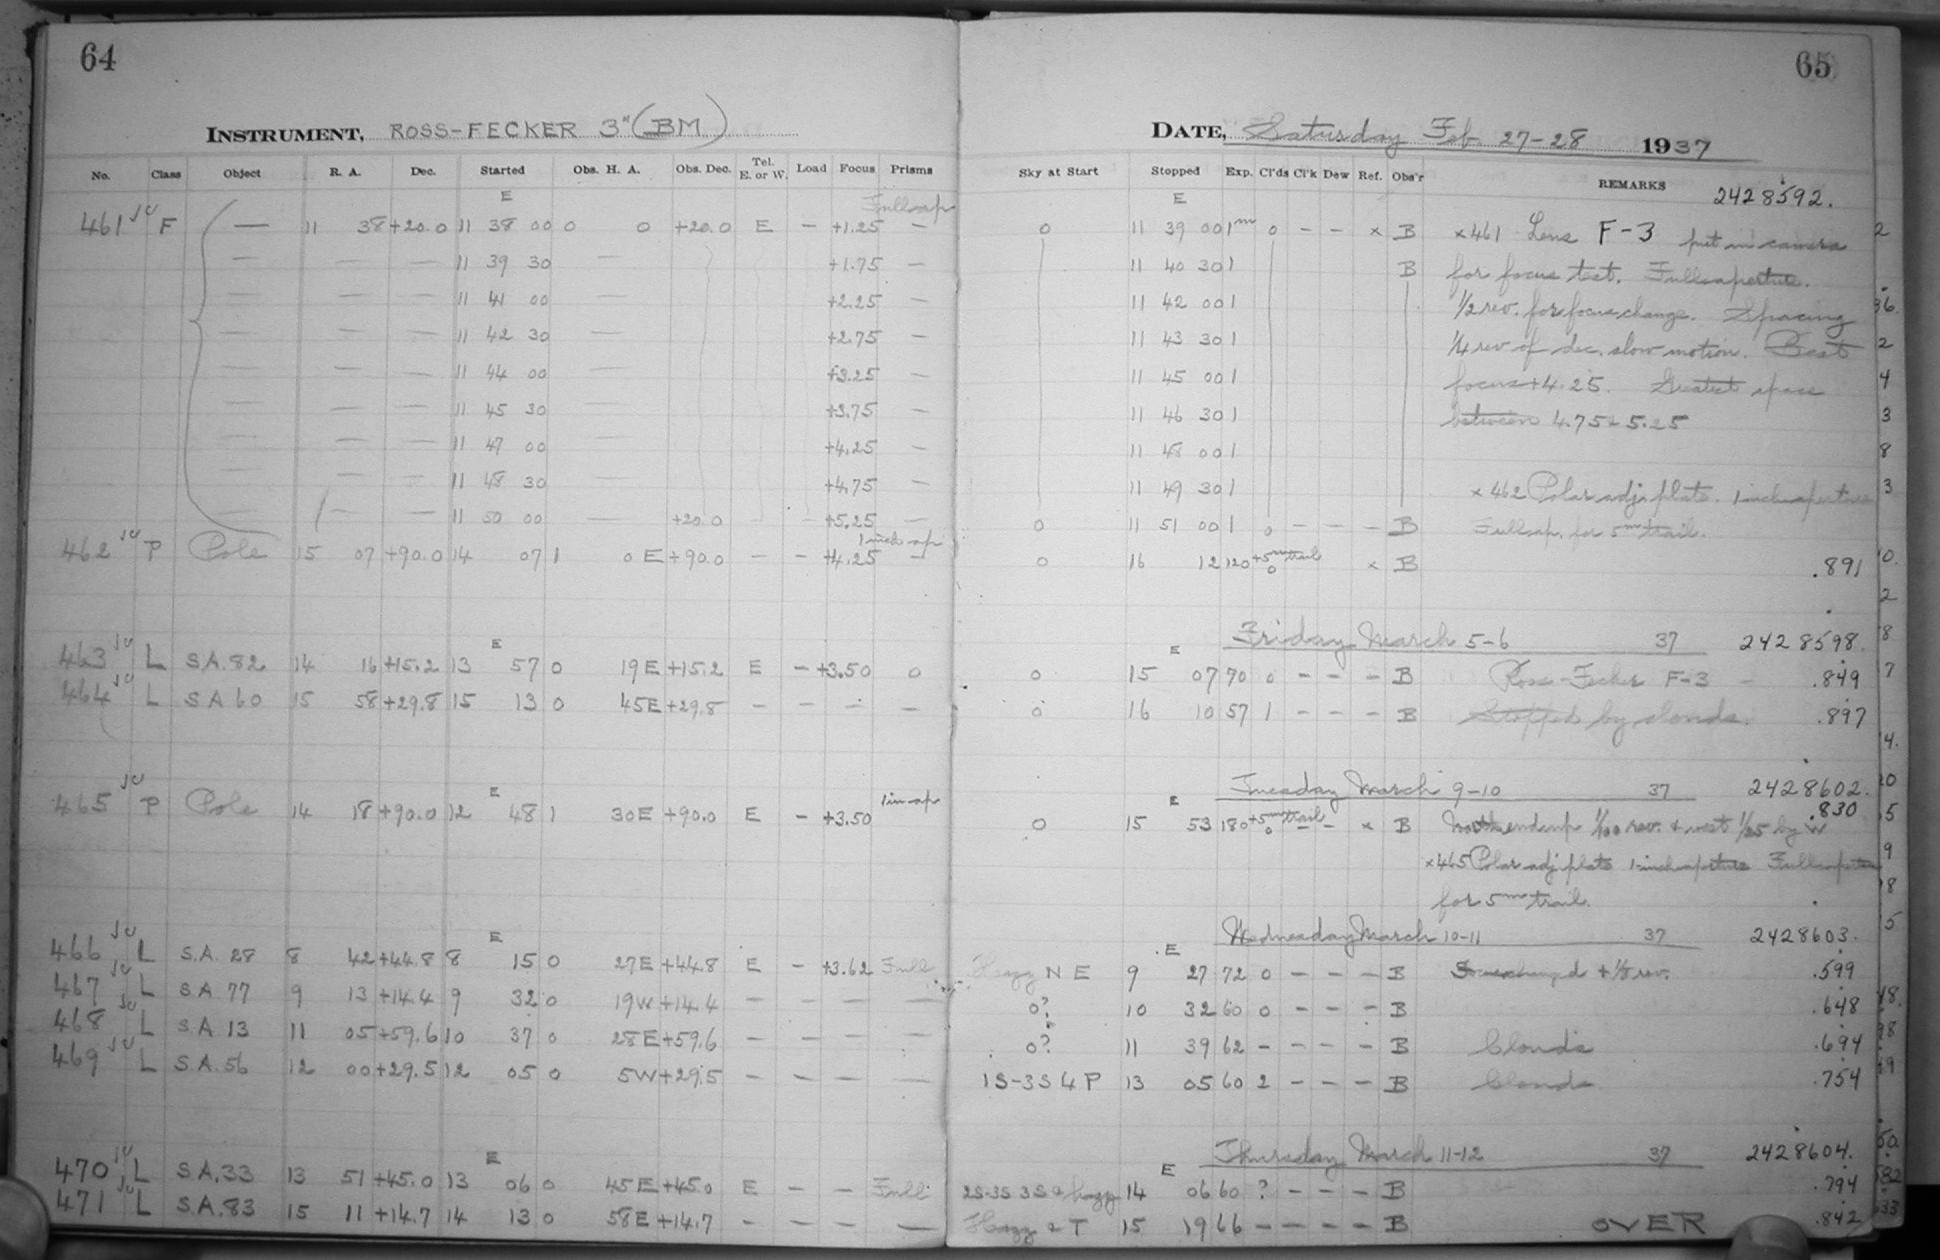 64
INSTRUMENT, ROSS-FECKER 3" (BM)
No. Class Object R. A. Dec. Started Obs. H. A. Obs. Dec. Tel. E. or W. Load Focus Prisms
E Full ap
461 F — 11 38 +20.0 11 38 00 0 0 +20.0 E — +1.25 —
— — — 11 39 30 — +1.75 —
— — — 11 41 00 — +2.25 —
— — — 11 42 30 — +2.75 —
— — — 11 44 00 — +3.25 —
— — — 11 45 30 — +3.75 —
— — — 11 47 00 — +4.25 —
— — — 11 48 30 +4.75 —
— — — 11 50 00 — +20.0 +5.25 —
1 inch ap
462 P Pole 15 07 +90.0 14 07 1 0 E +90.0 — — +4.25 —
E
463 L S.A. 82 14 16 +15.2 13 57 0 19 E +15.2 E — +3.50 0
464 L S A 60 15 58 +29.8 15 13 0 45E +29.8 — — — —
E 1 in ap
465 P Pole 14 18 +90.0 12 48 1 30E +90.0 E — +3.50
E
466 L S.A. 28 8 42 +44.8 8 15 0 27E +44.8 E — +3.62 Full
467 L S A 77 9 13 +14.4 9 32 0 19W +14.4 — — — —
468 L S.A. 13 11 05 +59.6 10 37 0 28E +59.6 — — — —
469 L S.A. 56 12 00 +29.5 12 05 0 5W +29.5 — — — —
E
470 L S A. 33 13 51 +45.0 13 06 0 45E +45.0 E — — Full
471 L S.A. 83 15 11 +14.7 14 13 0 58E +14.7 — — — —
65
DATE, Saturday Feb 27-28 1937
Sky at Start Stopped Exp. Cl'ds Cl'k Dew Ref. Obs'r REMARKS
E 2428592.
0 11 39 00 1m 0 — — x B x461 Lens F-3 put in camera
11 40 30 1 B for focus test. Full aperture.
11 42 00 1 1/2 rev. for focus change. Spacing
11 43 30 1 1/4 rev of dec. slow motion. Best
11 45 00 1 focus +4.25. Greatest space
11 46 30 1 between 4.75 & 5.25
11 48 00 1
11 49 30 1 x 462 Polar adj. plate. 1 inch aperture
0 11 51 00 1 0 — — — B Full ap. for 5m trail.
0 16 12 120 +5m trail 0 x B .891
Friday March 5-6 37 2428598.
E
0 15 07 70 0 — — — B Ross-Fecker F-3 .849
0 16 10 57 1 — — — B Stopped by clouds. .897
Tuesday March 9-10 37 2428602.
E .830
0 15 53 180 +5m trail 0 — — x B North end up 1/100 rev. & west 1/25 by W
x465 Polar adj. plate 1-inch aperture Full aperture
for 5m trail.
Wednesday March 10-11 37 2428603.
E
Hazy N E 9 27 72 0 — — — B Focus changed + 1/8 rev. .599
0? 10 32 60 0 — — — B .648
0? 11 39 62 — — — — B Clouds .694
1S-3S 4 P 13 05 60 2 — — — B Clouds .754
Thursday March 11-12 37 2428604.
E
2S-3S 3S & hazy 14 06 60 ? — — — B .794
Hazy & T 15 19 66 — — — — B OVER .842